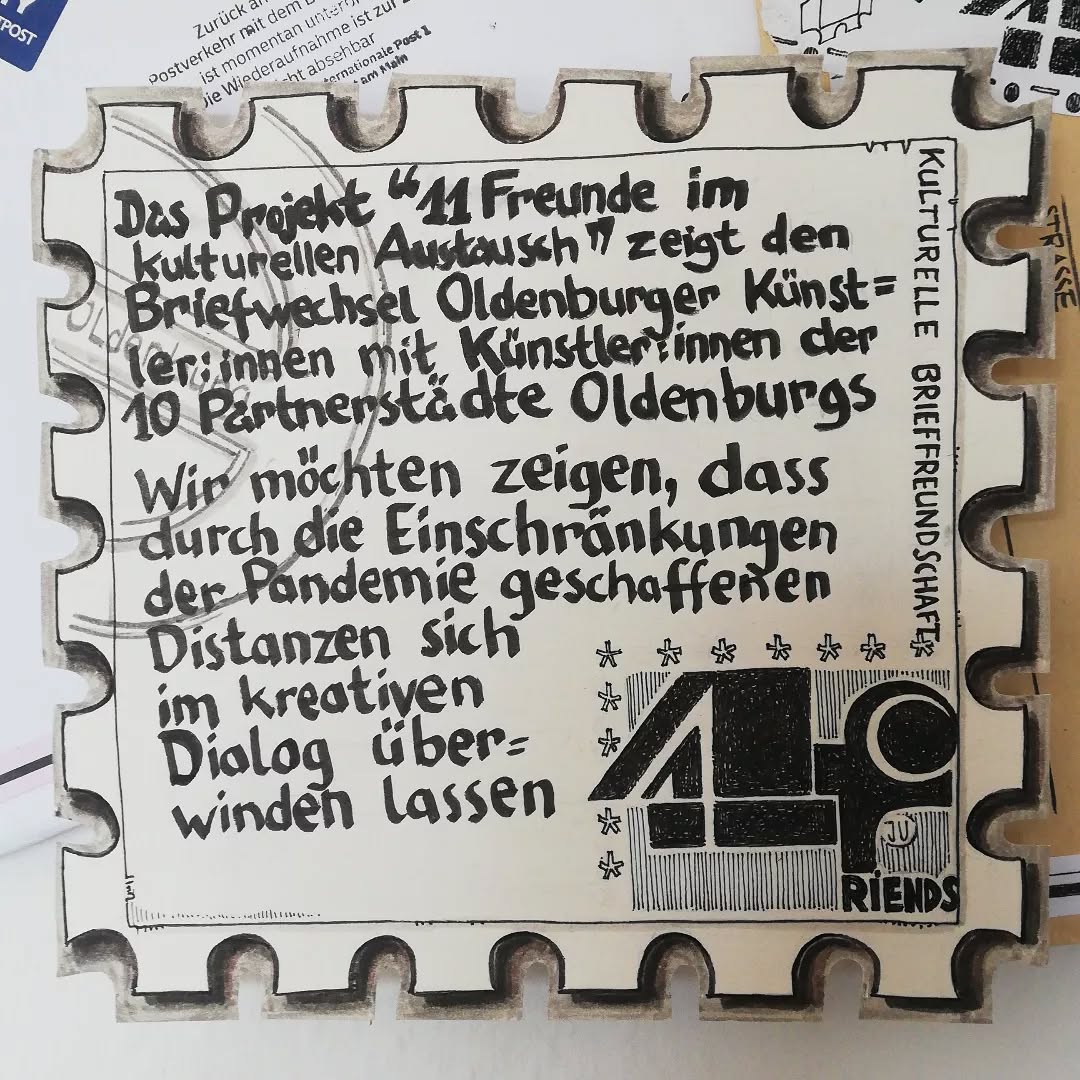 Zurück an
Postverkehr mit dem
ist momentan
Die Wiederaufnahme ist zur
absehbar
Internationale Post 1
am Main
Das Projekt “11 Freunde im
kulturellen Austausch” zeigt den
Briefwechsel Oldenburger Künst=
ler:innen mit Künstler:innen der
10 Partnerstädte Oldenburgs
Wir möchten zeigen, dass
durch die Einschränkungen
der Pandemie geschaffenen
Distanzen sich
im kreativen
Dialog über=
winden lassen
KULTURELLE BRIEFFREUNDSCHAFT
Oldenburg
STRASSE
11
f
JU
RIENDS